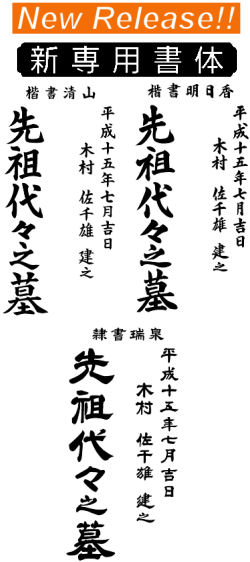 New Release!!
新専用書体
楷書清山
先祖代々之墓
平成十五年七月吉日
木村 佐千雄 建之
楷書明日香
先祖代々之墓
平成十五年七月吉日
木村 佐千雄 建之
隷書瑞泉
先祖代々之墓
平成十五年七月吉日
木村 佐千雄 建之